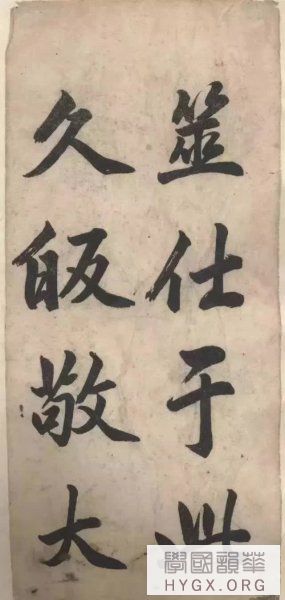 筮仕于此
久皈敬大
華韻國學
HYGX.ORG